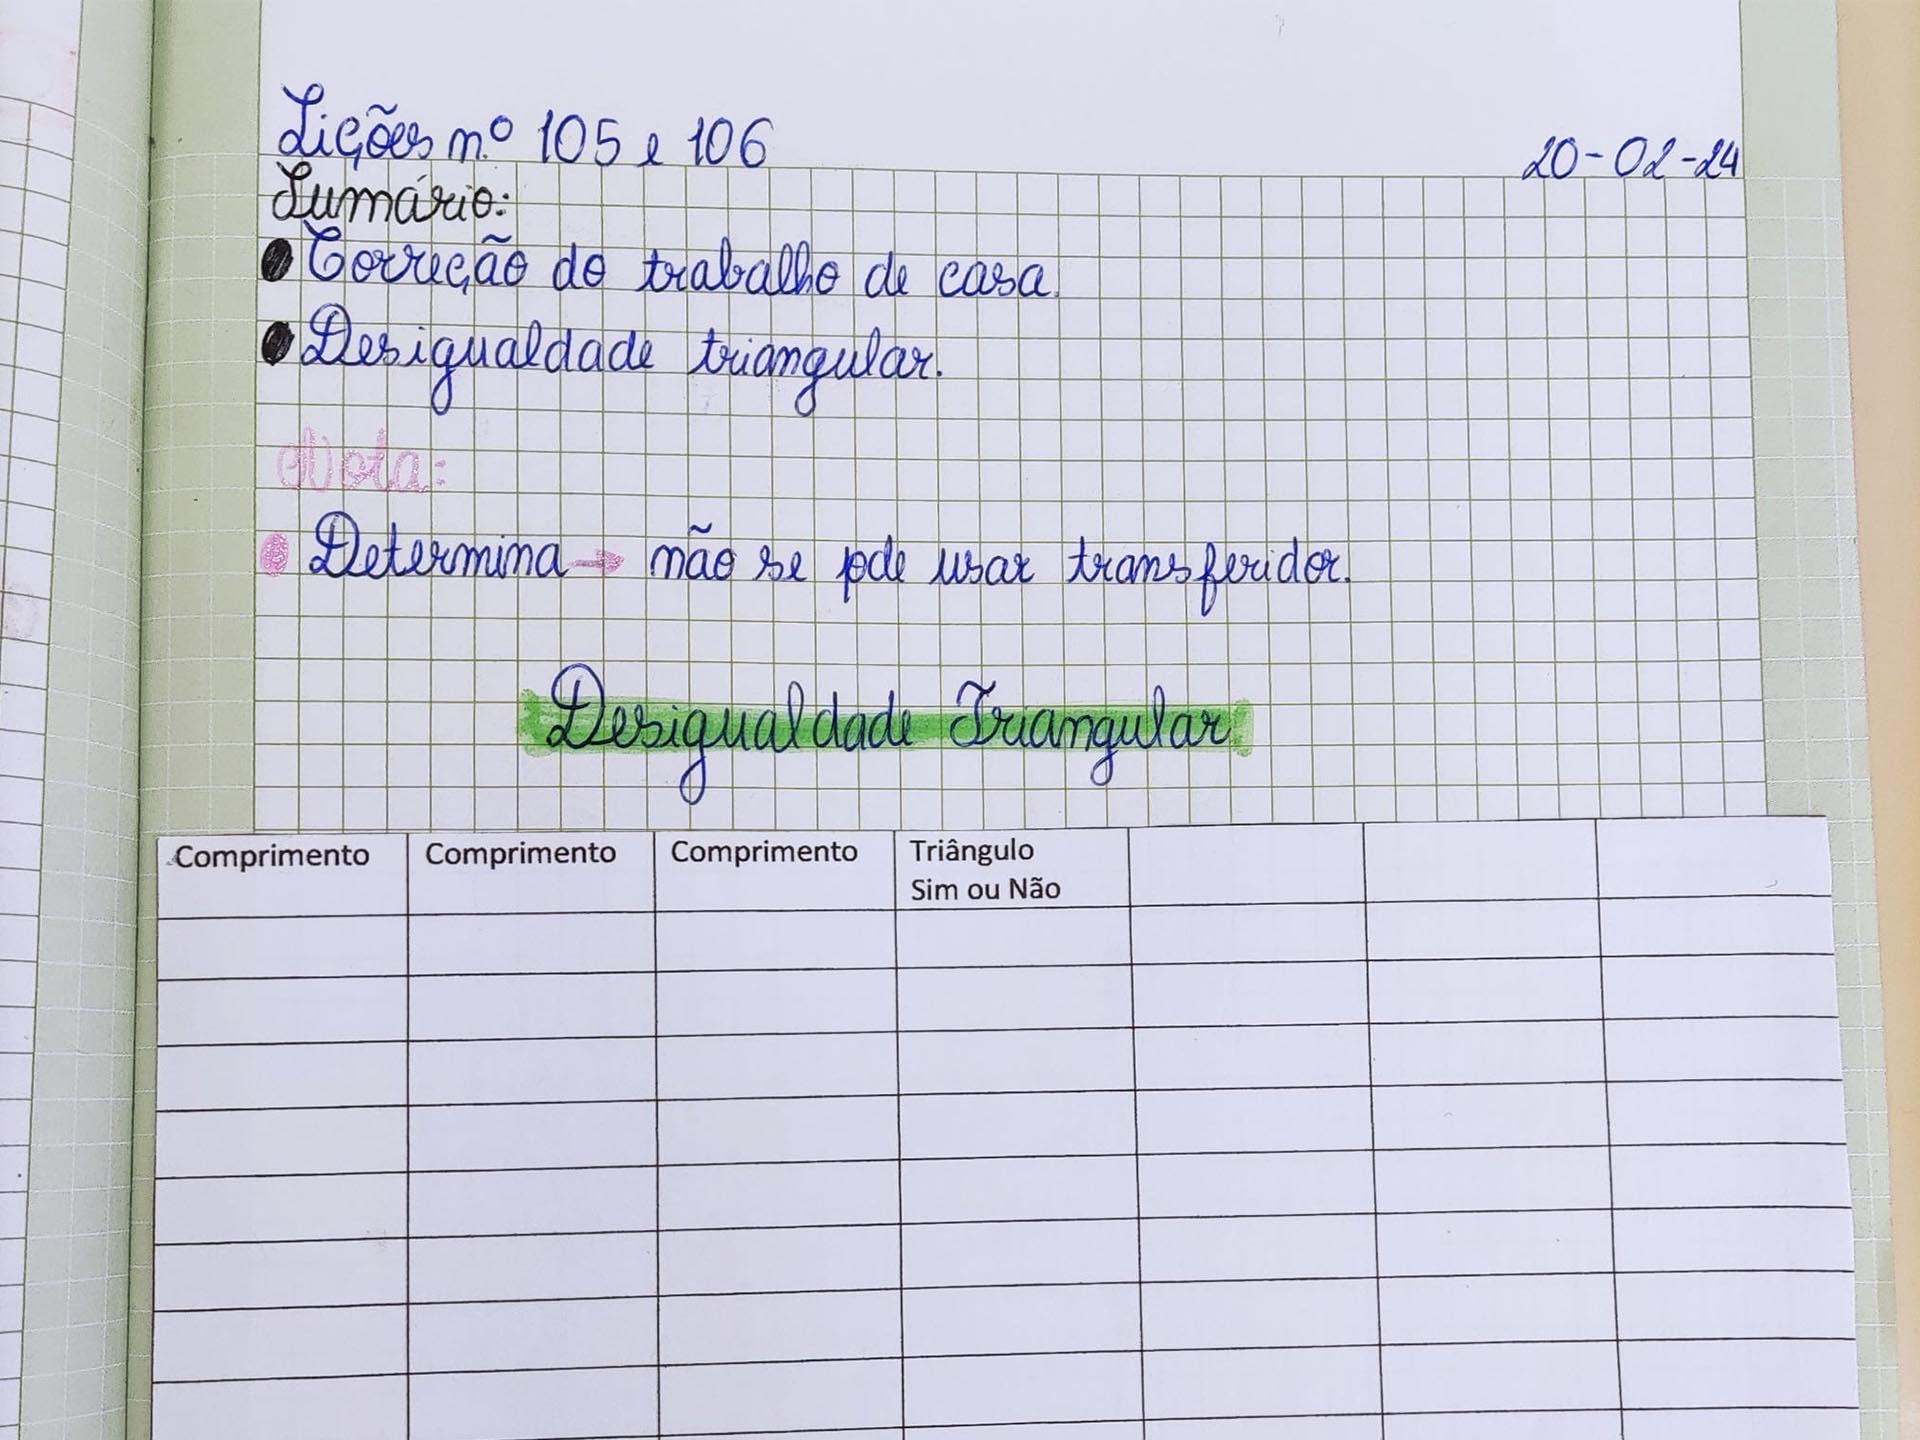 Lições n.º 105 e 106
20-02-24
Sumário:
Correção do trabalho de casa.
Desigualdade triangular.
Nota:
Determina → não se pde usar transferidor.
Desigualdade Triangular
Comprimento Comprimento Comprimento Triângulo
Sim ou Não